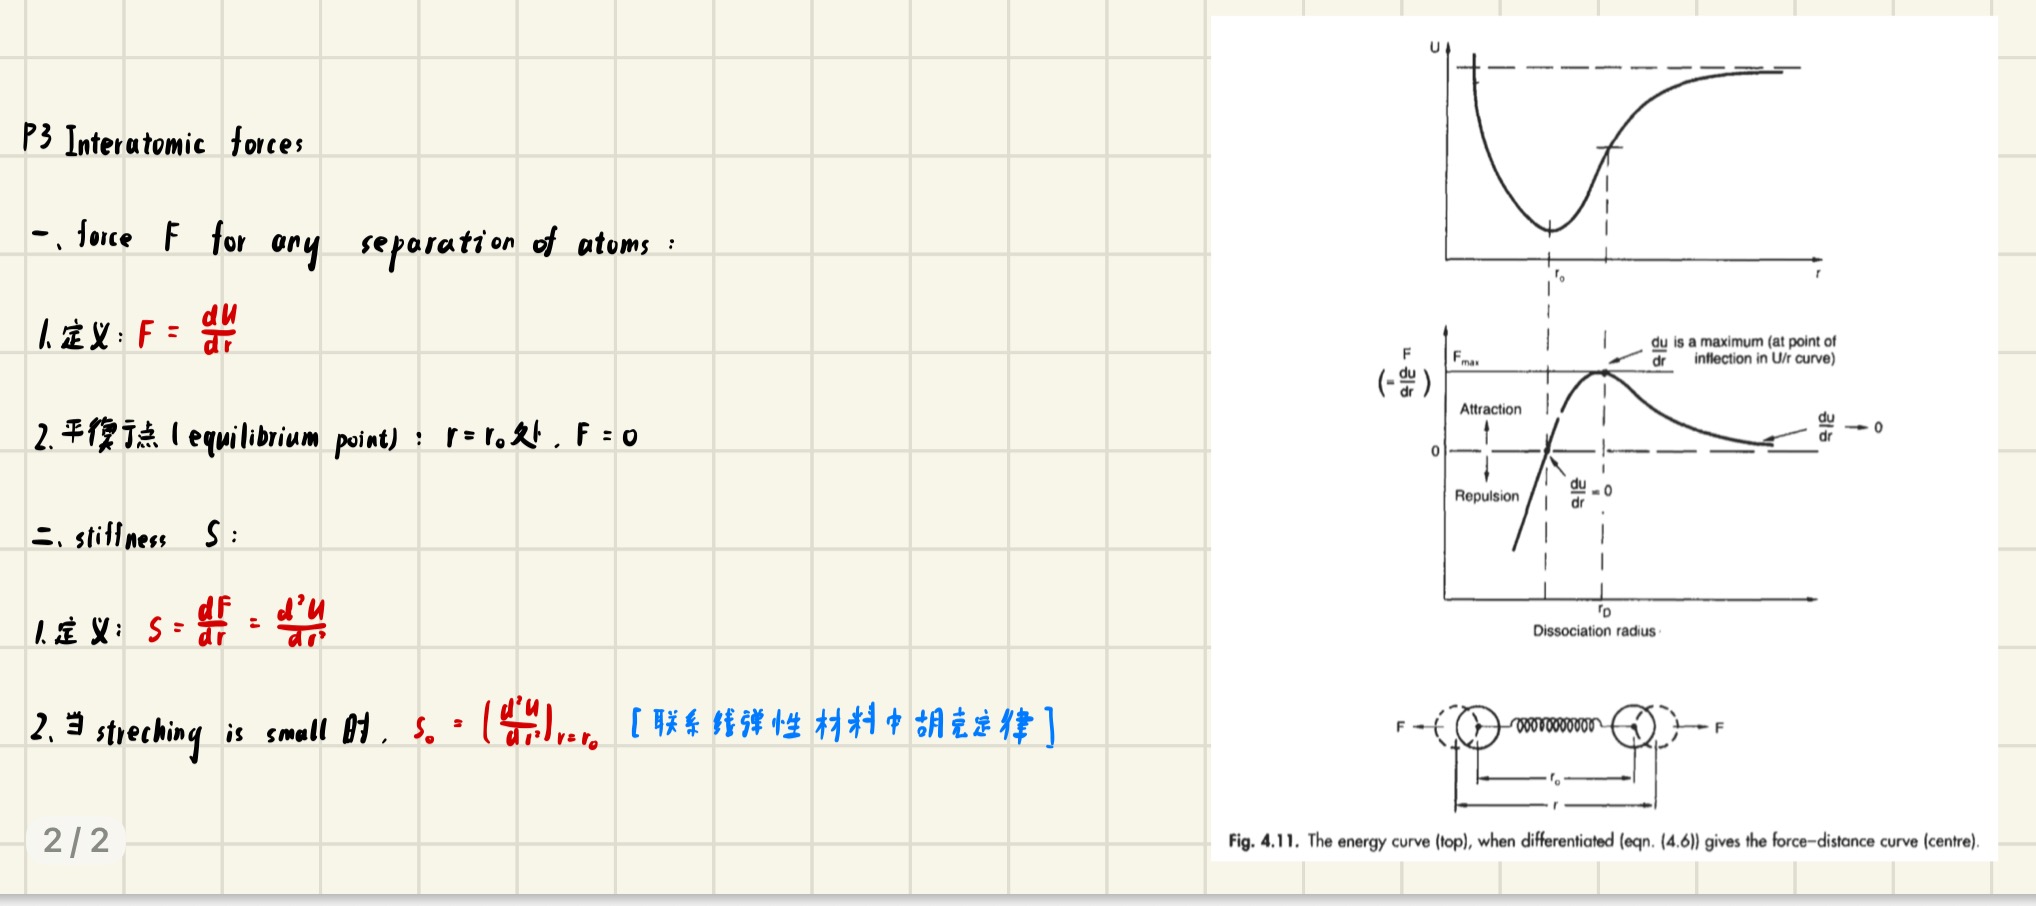 P3 Interatomic forces
一、force F for any separation of atoms :
1.定义: F = dU/dr
2.平衡点 ( equilibrium point) : r = r₀ 处 . F = 0
二、stiffness S :
1.定义: S = dF/dr = d²U/dr²
2.当 streching is small 时. S₀ = (d²U/dr²)r=r₀ [ 联系线弹性材料中胡克定律 ]
2 / 2
U
r₀
r
F
(= du/dr)
Fmax
du/dr is a maximum (at point of
inflection in U/r curve)
Attraction
du/dr → 0
0
Repulsion
du/dr = 0
rD
Dissociation radius
F
F
r₀
r
Fig. 4.11. The energy curve (top), when differentiated (eqn. (4.6)) gives the force–distance curve (centre).